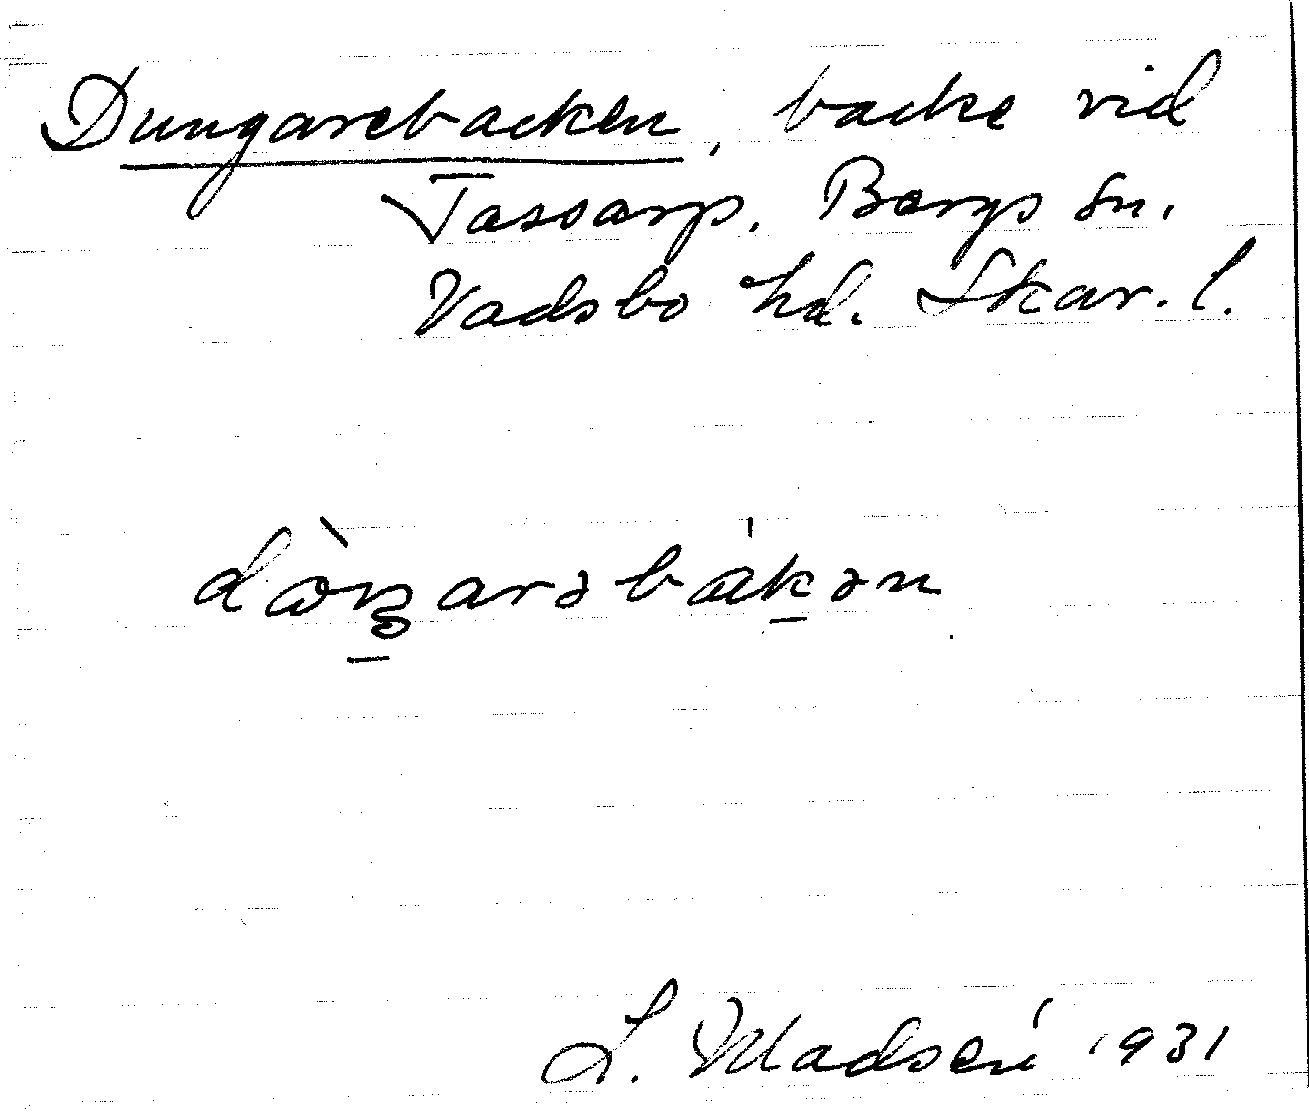 Dungarebacken, backe vid
Tassarp. Bergs sn.
Vadsbo hd. Skar. l.
L. Madsén 1931